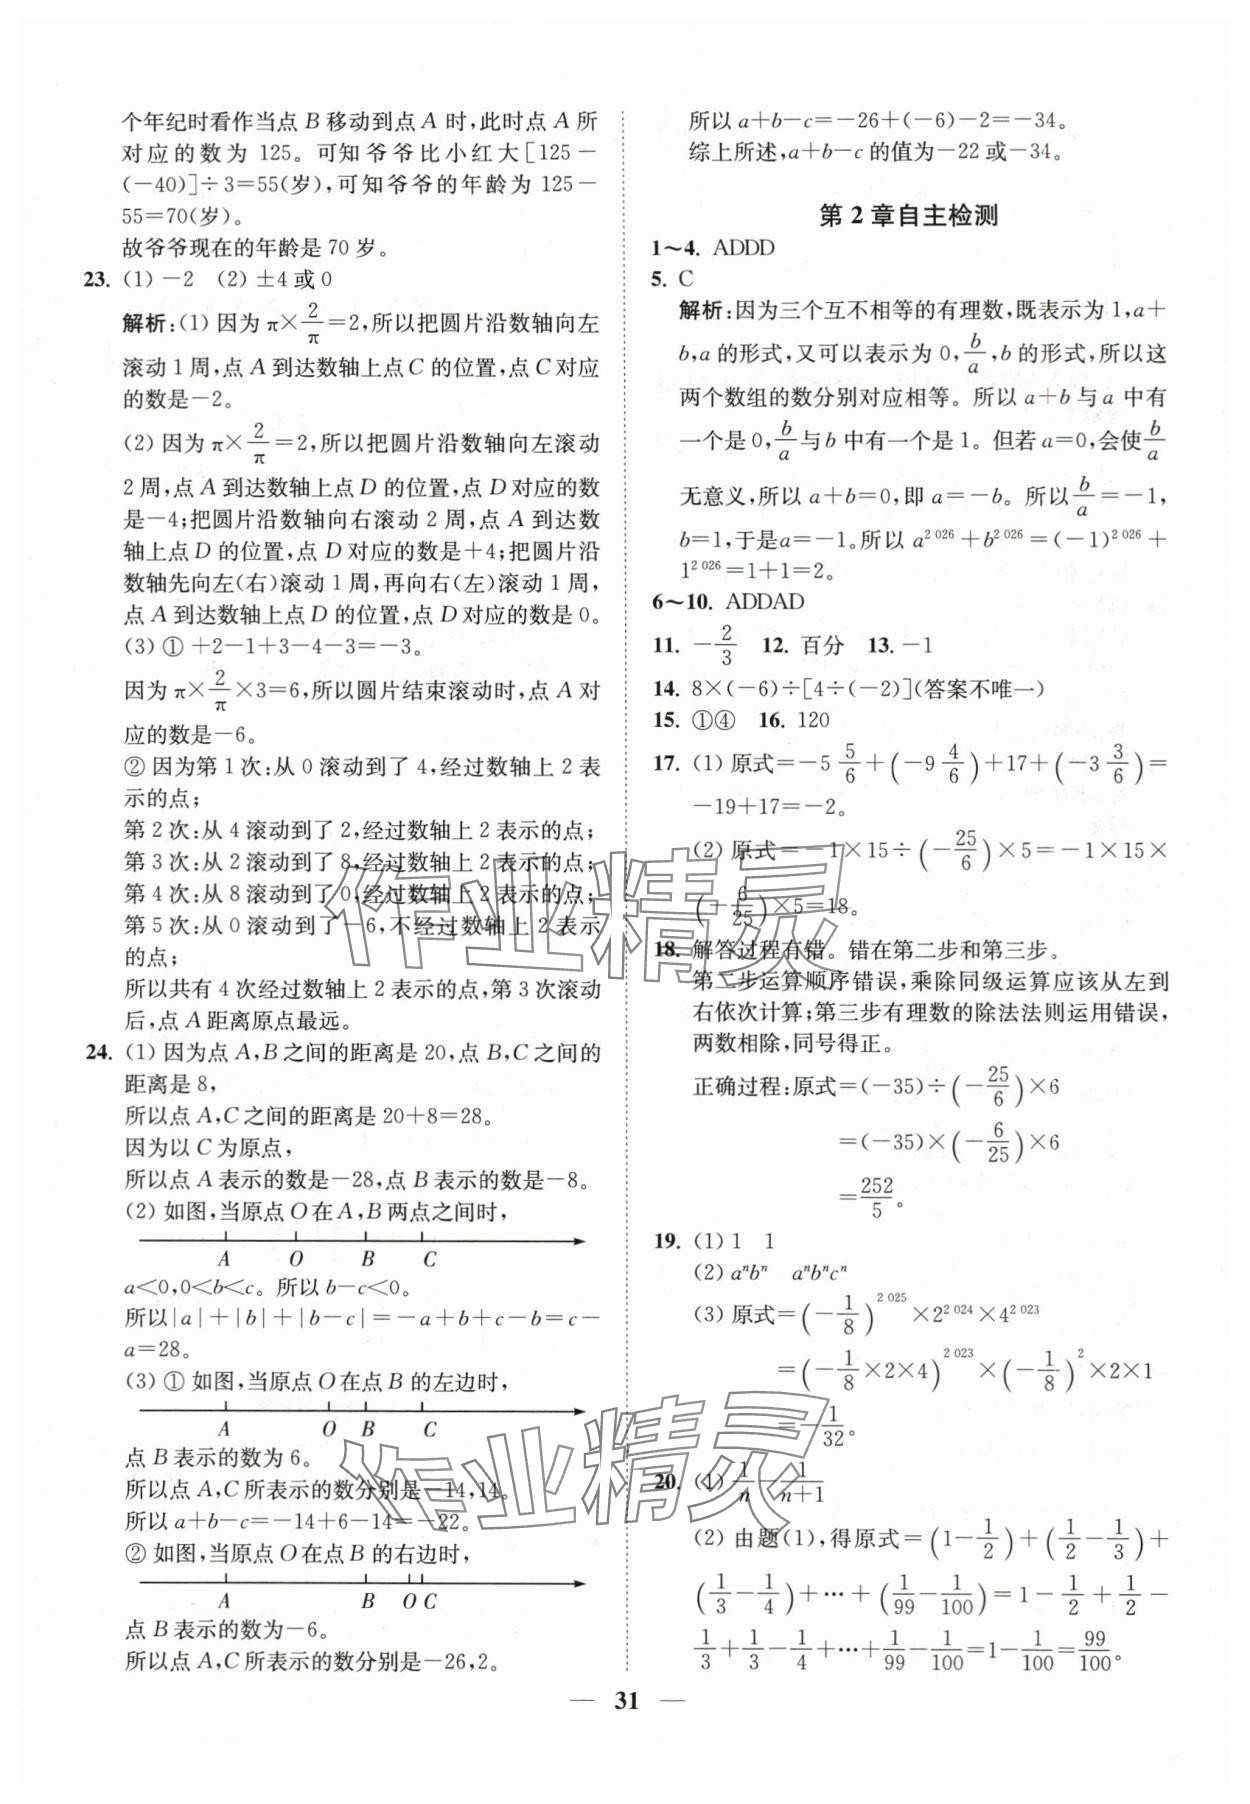 个年纪时看作当点 B 移动到点 A 时,此时点 A 所
对应的数为 125。可知爷爷比小红大[125-
(-40)]÷3=55(岁),可知爷爷的年龄为 125-
55=70(岁)。
故爷爷现在的年龄是 70 岁。
23. (1) -2 (2) ±4 或 0
解析:(1) 因为 π×2/π=2,所以把圆片沿数轴向左
滚动 1 周,点 A 到达数轴上点 C 的位置,点 C 对应
的数是-2。
(2) 因为 π×2/π=2,所以把圆片沿数轴向左滚动
2 周,点 A 到达数轴上点 D 的位置,点 D 对应的数
是-4;把圆片沿数轴向右滚动 2 周,点 A 到达数
轴上点 D 的位置,点 D 对应的数是+4;把圆片沿
数轴先向左(右)滚动 1 周,再向右(左)滚动 1 周,
点 A 到达数轴上点 D 的位置,点 D 对应的数是 0。
(3) ① +2-1+3-4-3=-3。
因为 π×2/π×3=6,所以圆片结束滚动时,点 A 对
应的数是-6。
② 因为第 1 次:从 0 滚动到了 4,经过数轴上 2 表
示的点;
第 2 次:从 4 滚动到了 2,经过数轴上 2 表示的点;
第 3 次:从 2 滚动到了 8,经过数轴上 2 表示的点;
第 4 次:从 8 滚动到了 0,经过数轴上 2 表示的点;
第 5 次:从 0 滚动到了-6,不经过数轴上 2 表示
的点;
所以共有 4 次经过数轴上 2 表示的点,第 3 次滚动
后,点 A 距离原点最远。
24. (1) 因为点 A,B 之间的距离是 20,点 B,C 之间的
距离是 8,
所以点 A,C 之间的距离是 20+8=28。
因为以 C 为原点,
所以点 A 表示的数是-28,点 B 表示的数是-8。
(2) 如图,当原点 O 在 A,B 两点之间时,
A O B C
a<0,0<b<c。所以 b-c<0。
所以|a|+|b|+|b-c|=-a+b+c-b=c-
a=28。
(3) ① 如图,当原点 O 在点 B 的左边时,
A O B C
点 B 表示的数为 6。
所以点 A,C 所表示的数分别是-14,14。
所以 a+b-c=-14+6-14=-22。
② 如图,当原点 O 在点 B 的右边时,
A B O C
点 B 表示的数为-6。
所以点 A,C 所表示的数分别是-26,2。
所以 a+b-c=-26+(-6)-2=-34。
综上所述,a+b-c 的值为-22 或-34。
第 2 章自主检测
1~4. ADDD
5. C
解析:因为三个互不相等的有理数,既表示为 1,a+
b,a 的形式,又可以表示为 0,b/a,b 的形式,所以这
两个数组的数分别对应相等。所以 a+b 与 a 中有
一个是 0,b/a 与 b 中有一个是 1。但若 a=0,会使 b/a
无意义,所以 a+b=0,即 a=-b。所以 b/a=-1,
b=1,于是 a=-1。所以 a^2 026+b^2 026=(-1)^2 026+
1^2 026=1+1=2。
6~10. ADDAD
11. -2/3 12. 百分 13. -1
14. 8×(-6)÷[4÷(-2)](答案不唯一)
15. ①④ 16. 120
17. (1) 原式=-5 5/6+(-9 4/6)+17+(-3 3/6)=
-19+17=-2。
(2) 原式=-1×15÷(-25/6)×5=-1×15×
(-6/25)×5=18。
18. 解答过程有错。错在第二步和第三步。
第二步运算顺序错误,乘除同级运算应该从左到
右依次计算;第三步有理数的除法法则运用错误,
两数相除,同号得正。
正确过程:原式=(-35)÷(-25/6)×6
=(-35)×(-6/25)×6
=252/5。
19. (1) 1 1
(2) a^n b^n a^n b^n c^n
(3) 原式=(-1/8)^2 025×2^2 024×4^2 023
=(-1/8×2×4)^2 023×(-1/8)^2×2×1
=-1/32。
20. (1) 1/n 1/(n+1)
(2) 由题(1),得原式=(1-1/2)+(1/2-1/3)+
(1/3-1/4)+…+(1/99-1/100)=1-1/2+1/2-
1/3+1/3-1/4+…+1/99-1/100=1-1/100=99/100。
— 31 —
作业精灵
作业精灵